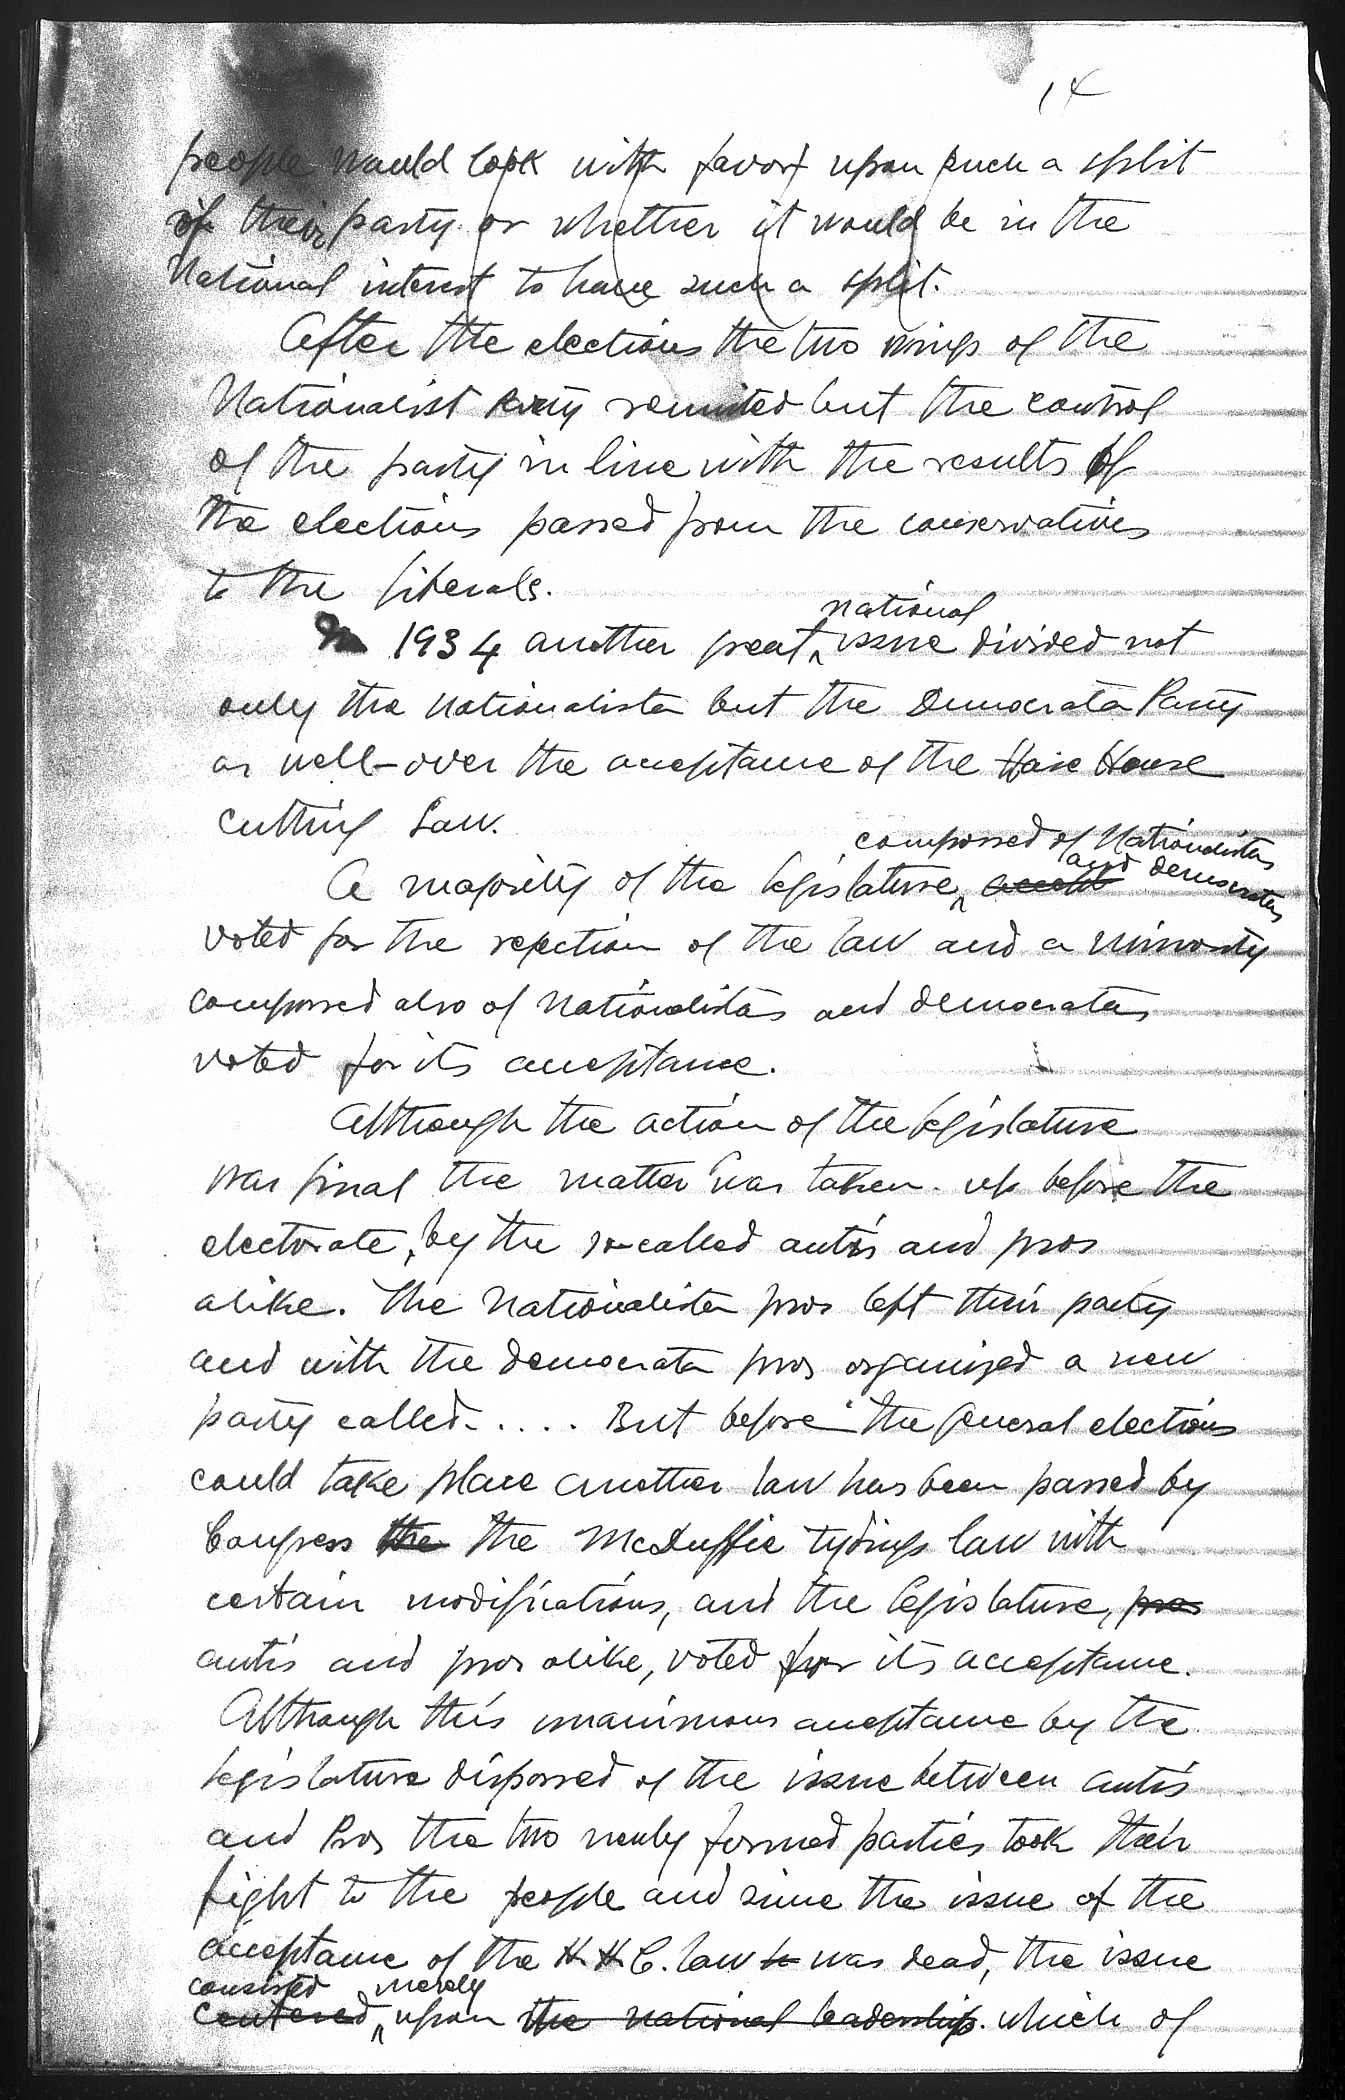 14
people would look with favor upon such a split
of their party or whether it would be in the
National interest to have such a split.
After the elections the two wings of the
Nationalist Party reunited but the control
of the party in line with the results of
the elections passed from the conservatives
to the liberals.
national
In 1934 another great issue divided not
only the nationalista but the Democrata Party
as well - over the acceptance of the Hare Hawse
Cutting Law.
composed of Nationalistas
and democratas
A majority of the legislature,
voted for the rejection of the law and a minority
composed also of nationalistas and democratas
voted for its acceptance.
Although the action of the legislature
was final the matter was taken up before the
electorate, by the so-called antis and pros
alike. The nationalista pros left their party
and with the democrata pros organized a new
party called..... But before the general elections
could take place another law has been passed by
Congress the the McDuffie Tydings law with
certain modifications, and the legislature, pros
antis and pros alike, voted for its acceptance.
Although this unanimous acceptance by the
legislature disposed of the issue between antis
and Pros the two newly formed parties took their
fight to the people and since the issue of the
acceptance of the H.H.C. law was dead, the issue
consisted merely
centered upon the national leadership. which of